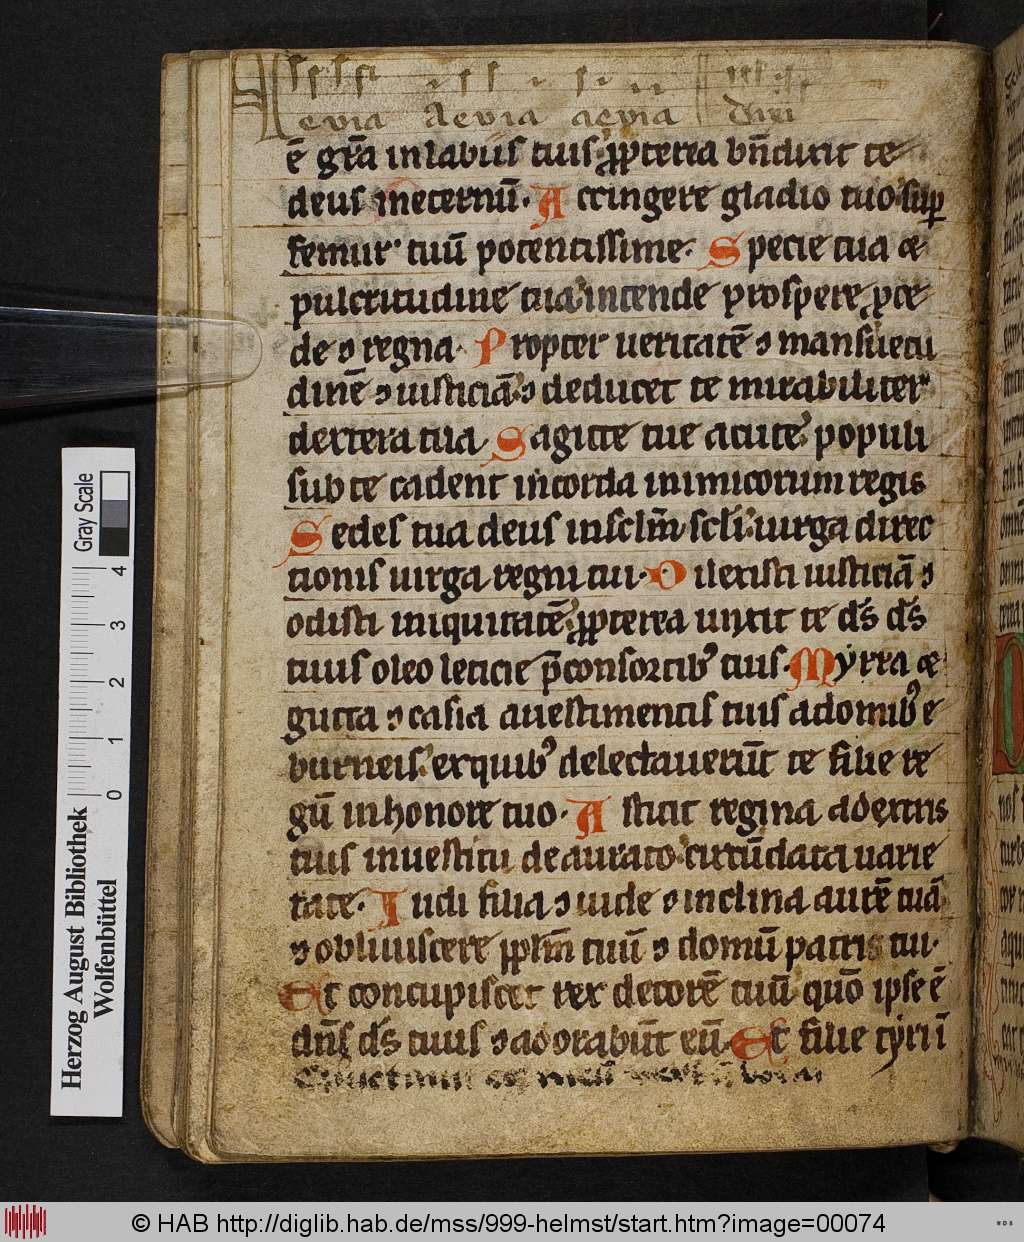 euia Aeuia aeuia
ē grā in labiis tuis ꝓpterea bn̄dixit te
deus ineternū. Accingere gladio tuo suꝑ
femur tuū potentissime. Specie tua ⁊
pulcritudine tua intende prospere ꝓce
de ⁊ regna. Propter ueritatē ⁊ mansuetu
dinē ⁊ iusticiā ⁊ deducet te mirabiliter
dextera tua. Sagitte tue acute populi
sub te cadent in corda inimicorum regis
Sedes tua deus in sclm̄ scli uirga direc
tionis uirga regni tui. Dilexisti iusticiā ⁊
odisti iniquitatē ꝓpterea unxit te ds̄ ds̄
tuus oleo leticie p̄ consortibꝰ tuis. Myrra ⁊
gutta ⁊ casia auestimentis tuis adomibꝰ e
burneis exquibꝰ delectauerūt te filie re
gū in honore tuo. Astitit regina adextris
tuis in uestitu deaurato circūdata uarie
tate. Audi filia ⁊ uide ⁊ inclina aurē tuā
⁊ obliuiscere pplm̄ tuū ⁊ domū patris tui.
Et concupiscet rex decorē tuū quō ipse ē
dn̄s ds̄ tuus ⁊ adorabūt eū. Et filie tyri ī
Gray Scale
4
3
2
1
0
Herzog August Bibliothek
Wolfenbüttel
© HAB http://diglib.hab.de/mss/999-helmst/start.htm?image=00074